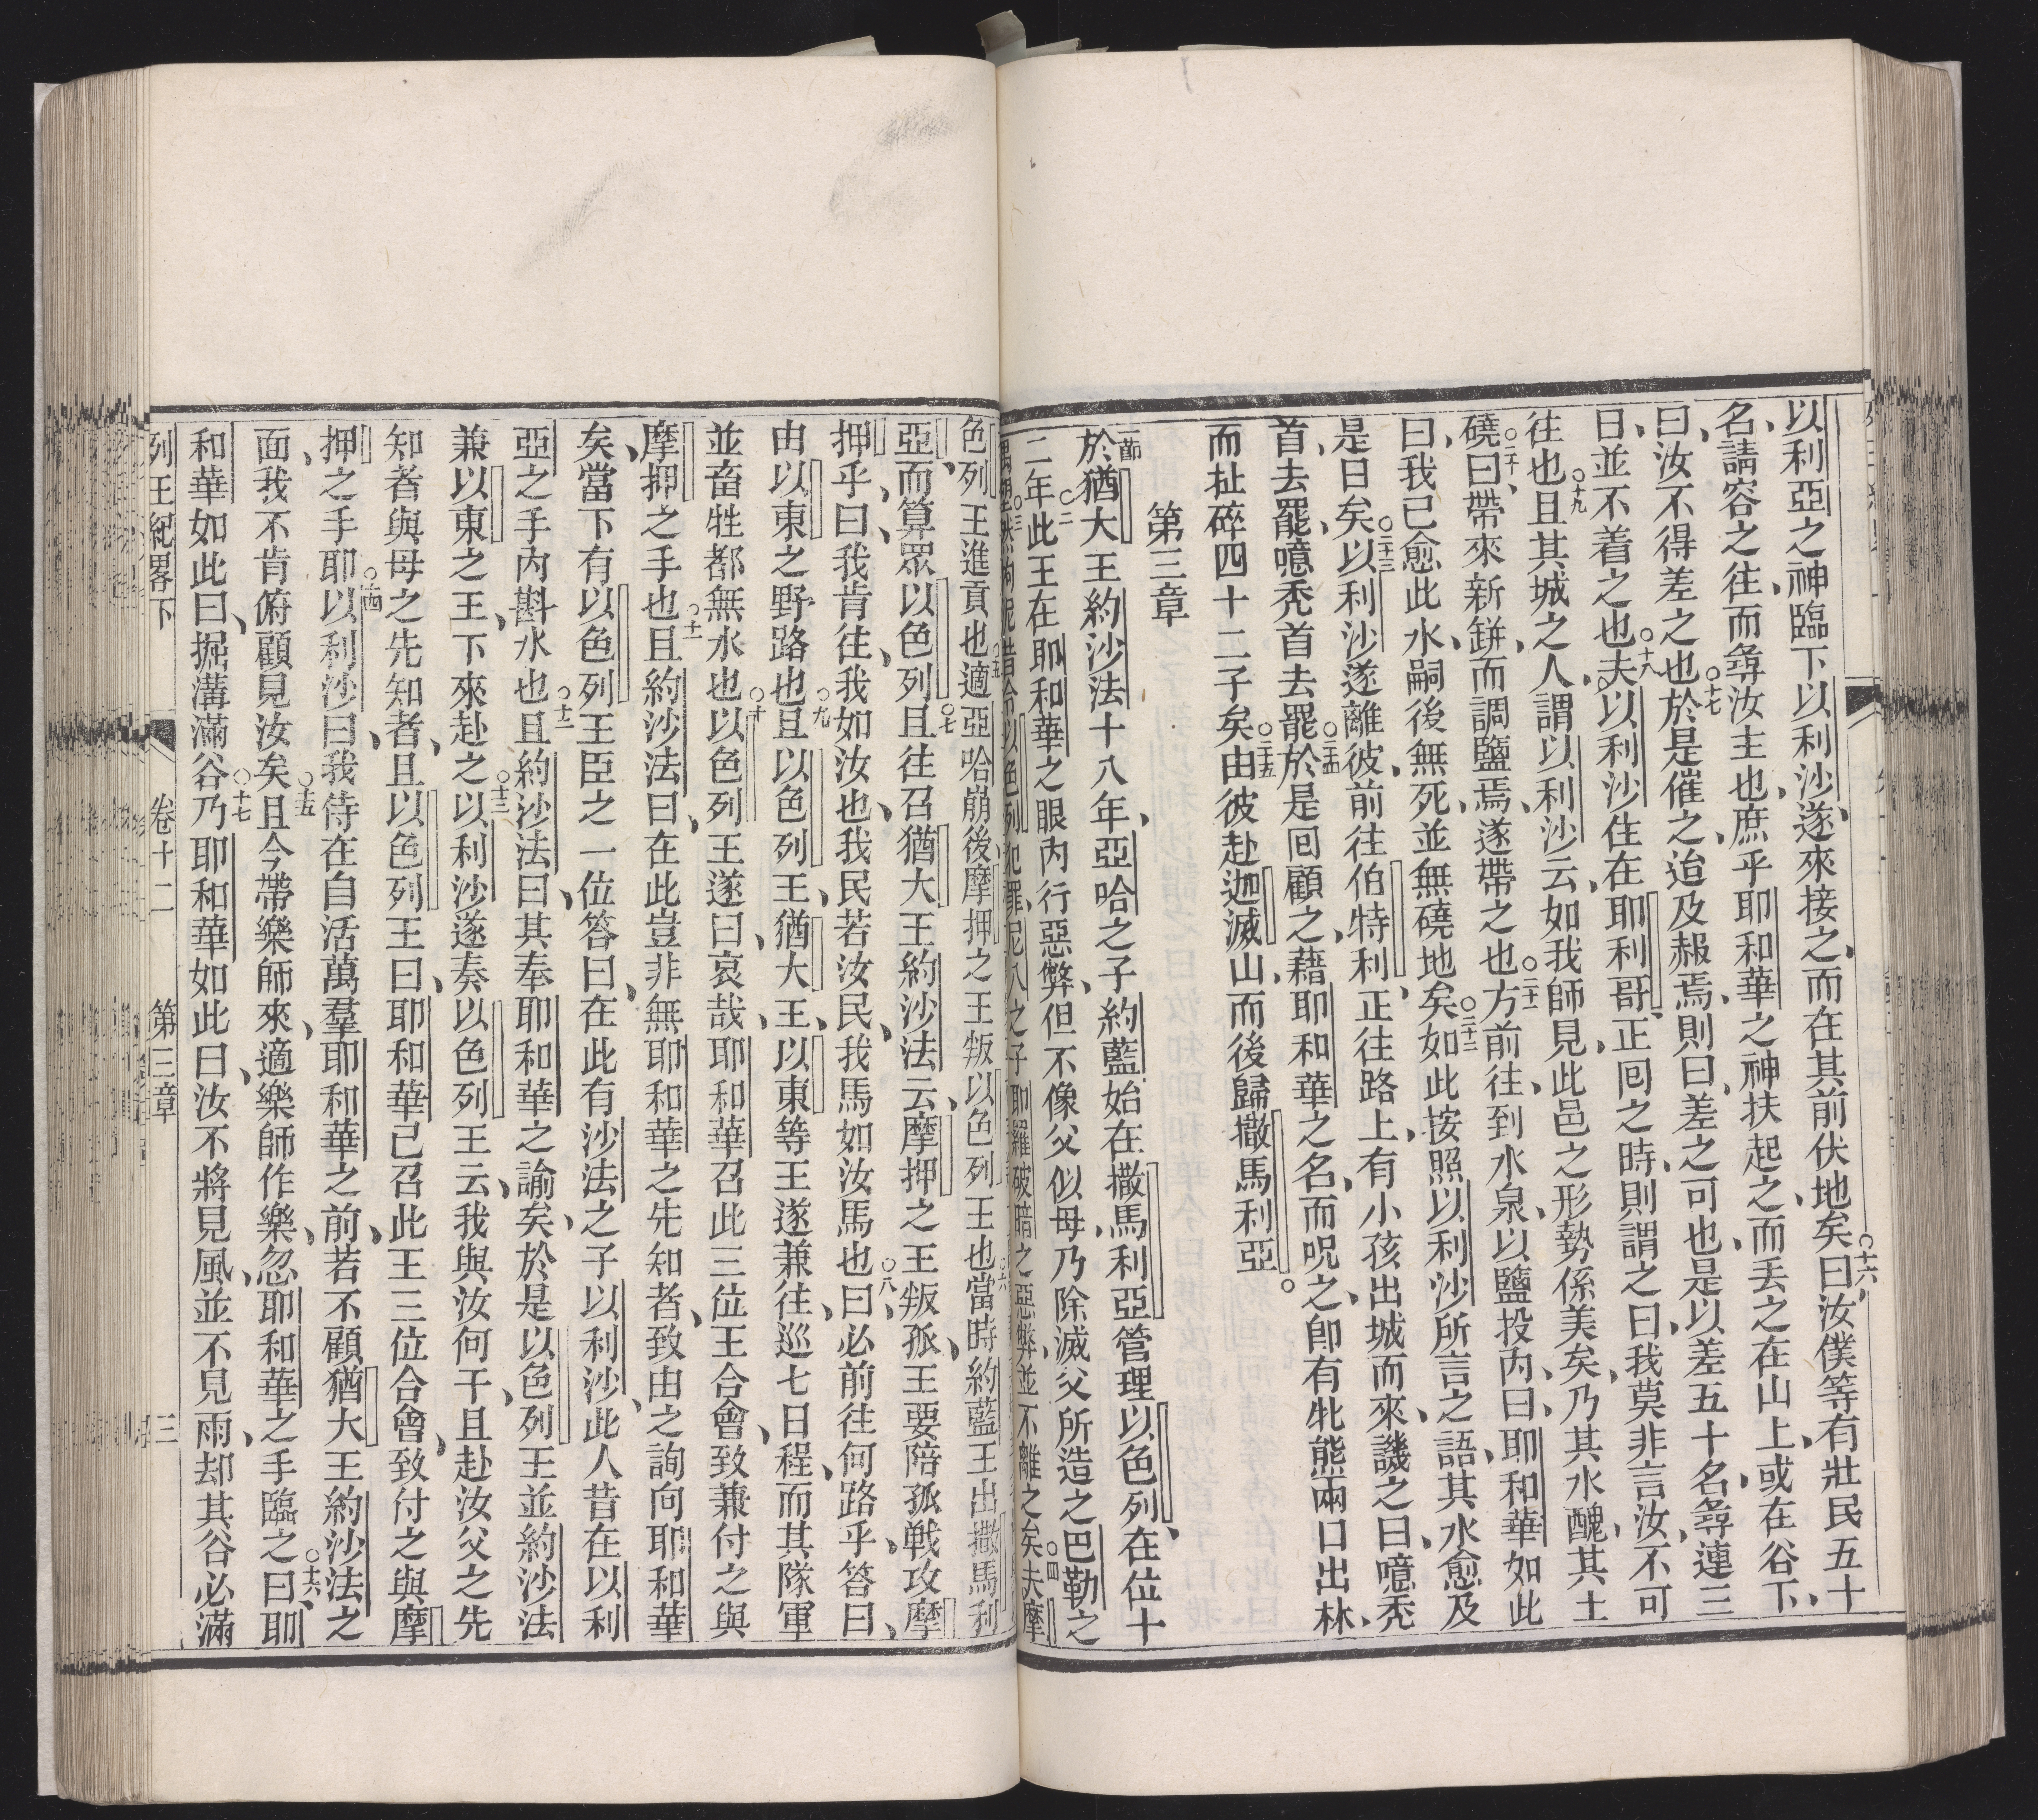 以利亞之神臨下以利沙、遂來接之、而在其前伏地矣○十六曰、汝僕等有壯民五十
名、請容之往、而尋汝主也、庶乎耶和華之神扶起之、而丟之在山上、或在谷下、
曰、汝不得差之也○十七於是催之、迨及赧焉、則曰、差之可也、是以差五十名、尋連三
日、並不着之也○十八夫以利沙住在耶利哥、正回之時、則謂之曰、我莫非言汝、不可
往也○十九且其城之人、謂以利沙云、如我師見此邑之形勢係美矣、乃其水醜、其土
磽○二十曰、帶來新缾、而調鹽焉、遂帶之也○二十一方前往到水泉、以鹽投內曰、耶和華如此
曰、我已愈此水、嗣後無死、並無磽地矣○二十二如此按照以利沙所言之語、其水愈及
是日矣○二十三以利沙遂離彼、前往伯特利、正往路上、有小孩出城而來、譏之曰、噫禿
首、去罷、噫禿首去罷○二十四於是回顧之、藉耶和華之名、而呪之、卽有牝熊兩口出林、
而扯碎四十二子矣○二十五由彼赴迦滅山、而後歸撒馬利亞。
第三章
一節於猶大王約沙法十八年、亞哈之子約藍、始在撒馬利亞管理以色列、在位十
二年○二此王在耶和華之眼內行惡弊、但不像父似母、乃除滅父所造之巴勒之
○三昔令以色列犯罪、尼八之子耶羅破暗之惡弊、並不離之矣○四夫摩
色列王進貢也○五適亞哈崩後、摩押之王叛以色列王也○六當時約藍王出撒馬利
亞、而算眾以色列○七且往召猶大王約沙法云、摩押之王叛孤、王要陪孤戰攻摩
押乎、曰、我肯往、我如汝也、我民若汝民、我馬如汝馬也○八曰、必前往何路乎、答曰、
由以東之野路也○九且以色列王、猶大王、以東等王、遂兼往、巡七日程、而其隊軍
並畜牲都無水也○十以色列王遂曰、哀哉、耶和華召此三位王合會、致兼付之與
摩押之手也○十一且約沙法曰、在此豈非無耶和華之先知者、致由之詢向耶和華
矣、當下有以色列王臣之一位答曰、在此有沙法之子以利沙、此人昔在以利
亞之手內斟水也○十二且約沙法曰、其奉耶和華之諭矣、於是以色列王並約沙法
兼以東之王、下來赴之○十三以利沙遂奏以色列王云、我與汝何干、且赴汝父之先
知者與母之先知者、且以色列王曰、耶和華已召此王三位合會、致付之與摩
押之手耶○十四以利沙曰、我侍在自活萬羣耶和華之前、若不顧猶大王約沙法之
面、我不肯俯顧見汝矣○十五且今帶樂師來、適樂師作樂、忽耶和華之手臨之○十六曰、耶
和華如此曰、掘溝滿谷○十七乃耶和華如此曰、汝不將見風、並不見雨、却其谷必滿
列王紀畧下 卷十二 第三章 三